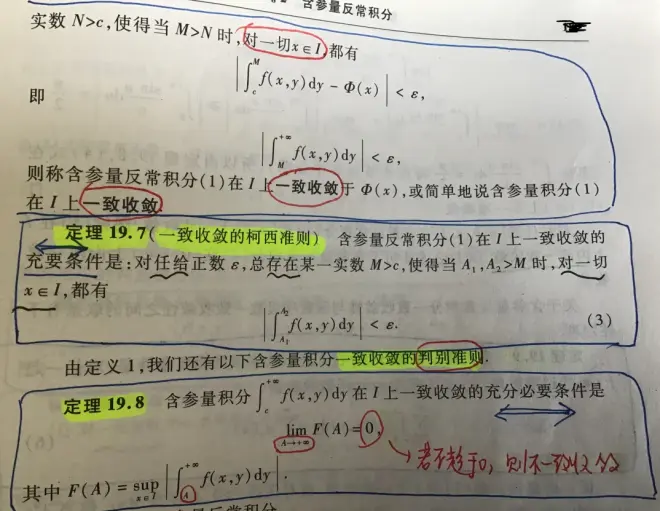 含参量反常积分
实数 N>c,使得当 M>N 时,对一切x∈I,都有
|∫_c^M f(x,y)dy − Φ(x)| < ε,
即
|∫_M^{+∞} f(x,y)dy| < ε,
则称含参量反常积分(1)在 I 上一致收敛于 Φ(x),或简单地说含参量积分(1)
在 I 上一致收敛.
定理 19.7(一致收敛的柯西准则) 含参量反常积分(1)在 I 上一致收敛的
充要条件是:对任给正数 ε,总存在某一实数 M>c,使得当 A₁,A₂>M 时,对一切
x∈I,都有
|∫_{A₁}^{A₂} f(x,y)dy| < ε. (3)
由定义 1,我们还有以下含参量积分一致收敛的判别准则.
定理 19.8 含参量积分 ∫_c^{+∞} f(x,y)dy 在 I 上一致收敛的充分必要条件是
lim_{A→+∞} F(A)=0,
若不趋于0,则不一致收敛
其中 F(A)=sup_{x∈I} |∫_A^{+∞} f(x,y)dy|.